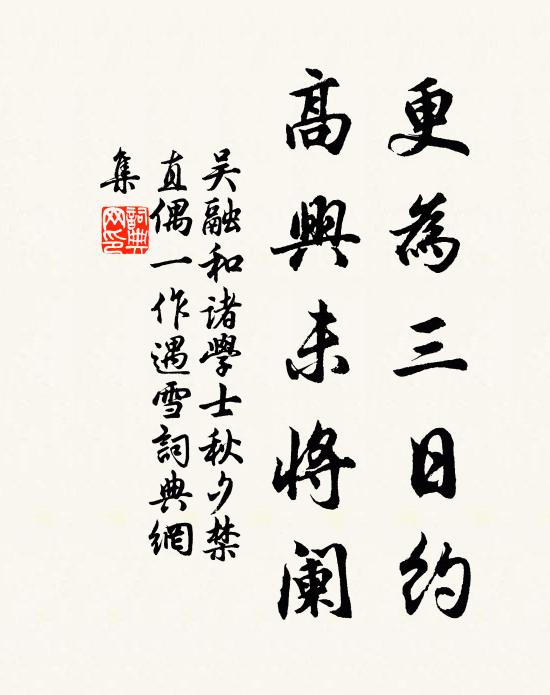 更為三日约
高興未将阑
吴融和诸學士秋夕禁
直偶一作遇雪詞典網
集
詞典
网印